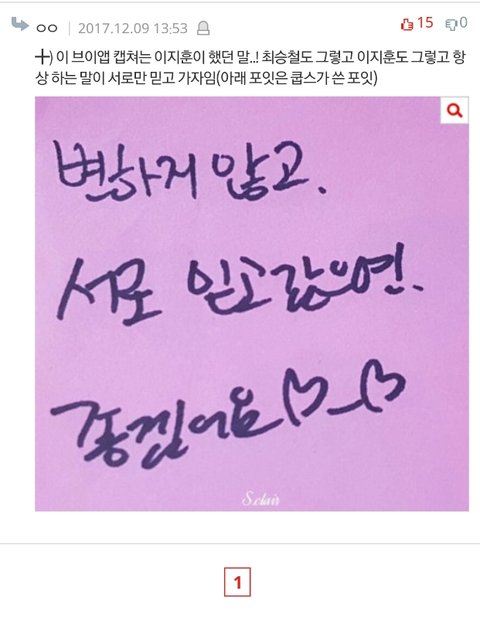 ㅇㅇ | 2017.12.09 13:53 15 0
+) 이 브이앱 캡쳐는 이지훈이 했던 말..! 최승철도 그렇고 이지훈도 그렇고 항
상 하는 말이 서로만 믿고 가자임(아래 포잇은 쿱스가 쓴 포잇)
변하지 않고.
서로 믿고 갔으면.
좋겠어요 ♡_♡
S.clair
1